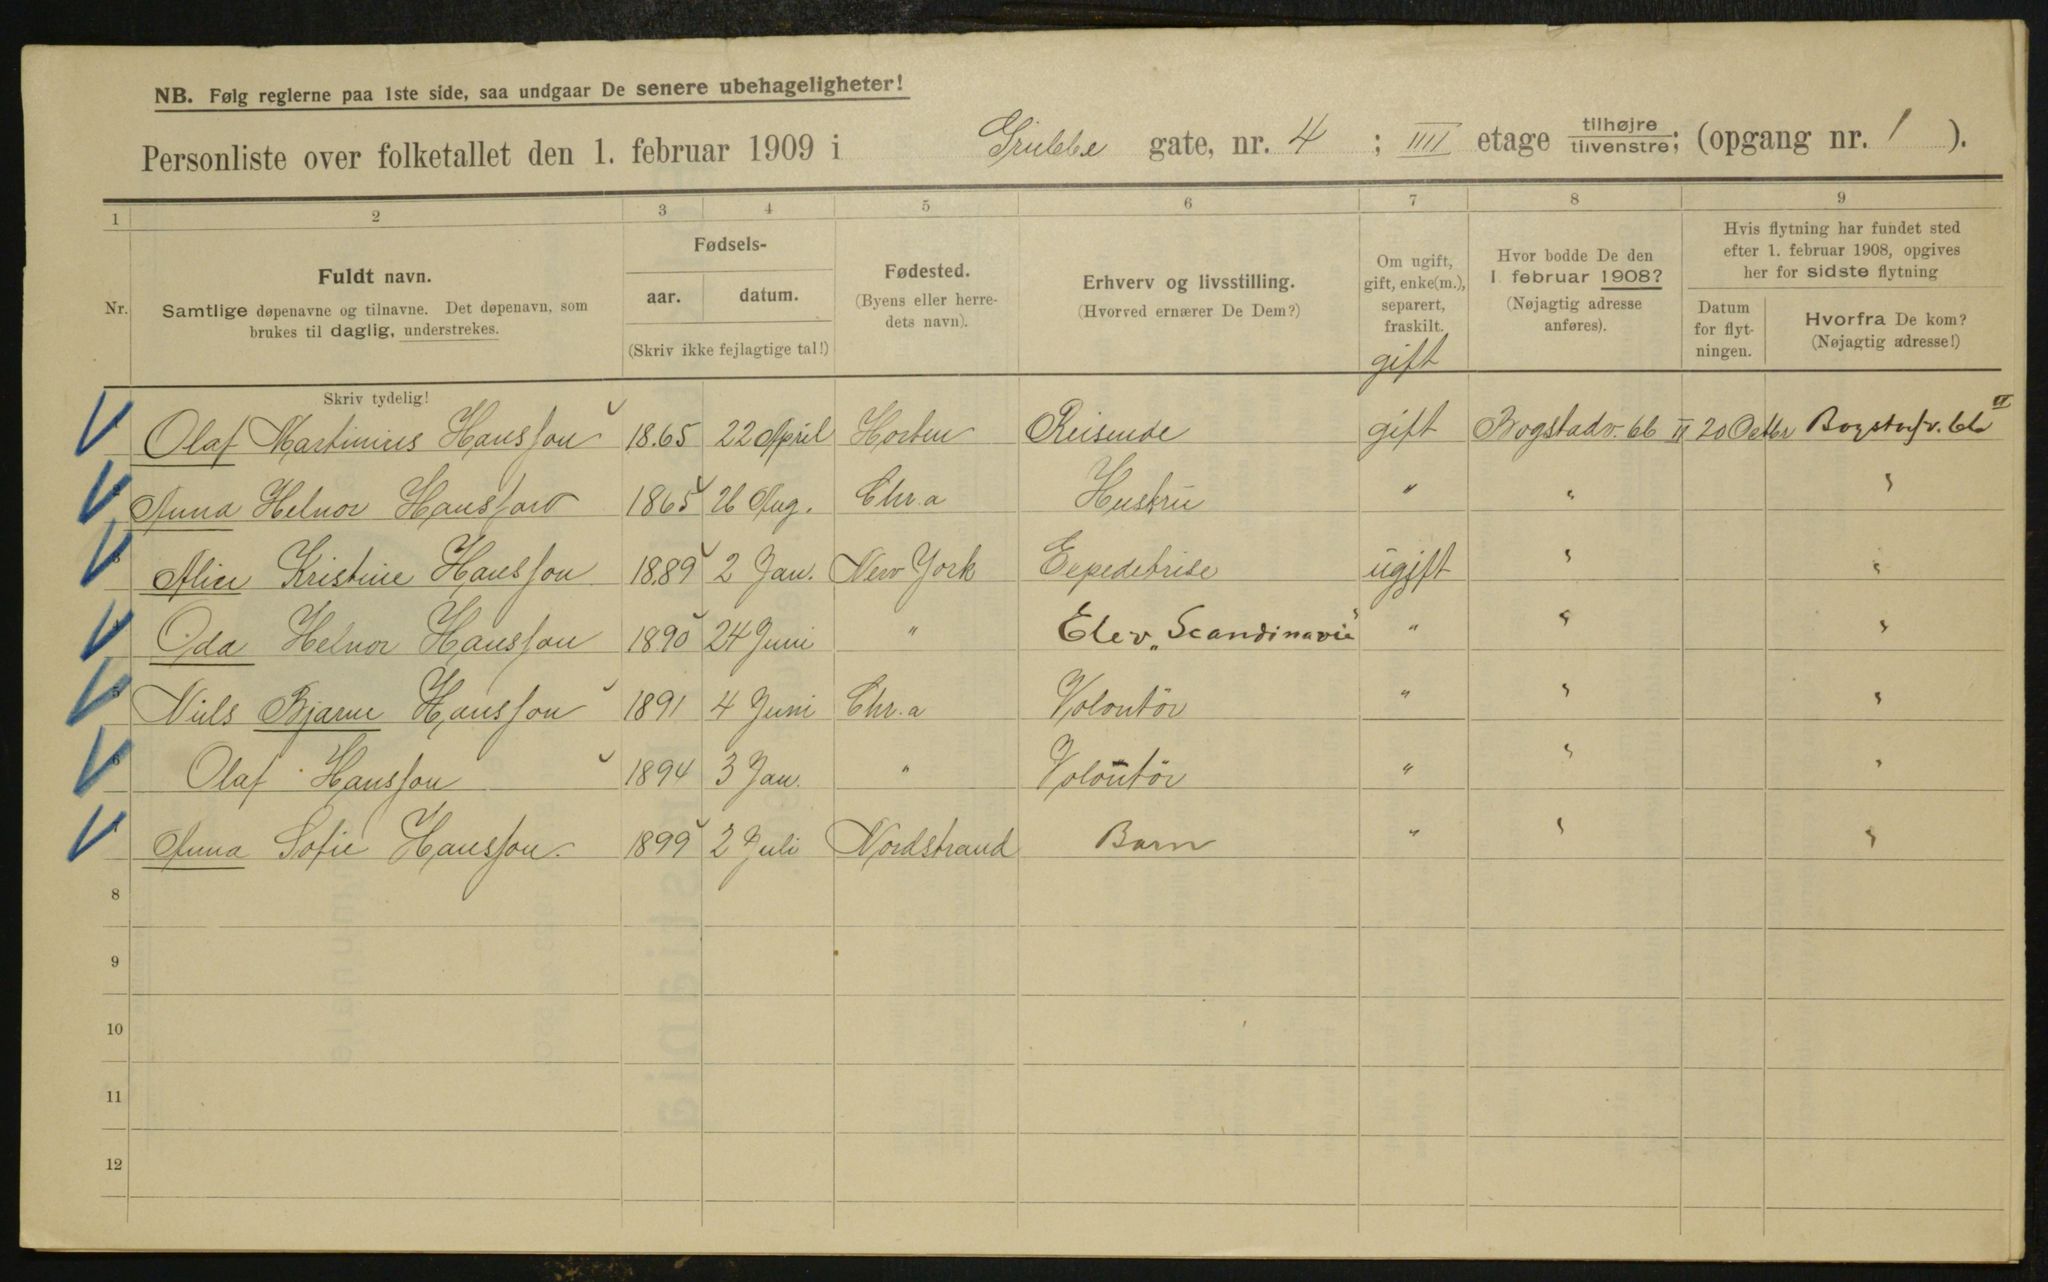 NB. Følg reglerne paa 1ste side, saa undgaar De senere ubehageligheter!
Personliste over folketallet den 1. februar 1909 i Grubbe gate, nr. 4 ; IIII etage tilhøjre tilvenstre; (opgang nr. 1 ).
1 2 3 4 5 6 7 8 9
Nr.
Fuldt navn.
Samtlige døpenavne og tilnavne. Det døpenavn, som
brukes til daglig, understrekes.
Fødsels-
aar. datum.
(Skriv ikke fejlagtige tal!)
Fødested.
(Byens eller herre-
dets navn).
Erhverv og livsstilling.
(Hvorved ernærer De Dem?)
Om ugift,
gift, enke(m.),
separert,
fraskilt.
gift
Hvor bodde De den
1. februar 1908?
(Nøjagtig adresse
anføres).
Hvis flytning har fundet sted
efter 1. februar 1908, opgives
her for sidste flytning
Datum
for flyt-
ningen.
Hvorfra De kom?
(Nøjagtig adresse!)
Skriv tydelig!
Olaf Martinius Hansson 1865 22 April Horten Reisende gift Bogstadv. 66 II 20 Octbr Bogstadv. 66 II
Anna Helnor Hansson 1865 26 Aug. Chr.a Hustru " " "
Alice Kristine Hansson 1889 2 Jan. New York Expeditrise ugift " "
Oda Helnor Hansson 1890 24 Juni " Elev „Scandinavie" " " "
5 Niels Bjarne Hansson 1891 4 Juni Chr.a Volontør " " "
6 Olaf Hansson 1894 3 Jan. " Volontør " " "
Anna Sofie Hansson. 1899 2 Juli Nordstrand Barn " " "
8
9
10
11
12